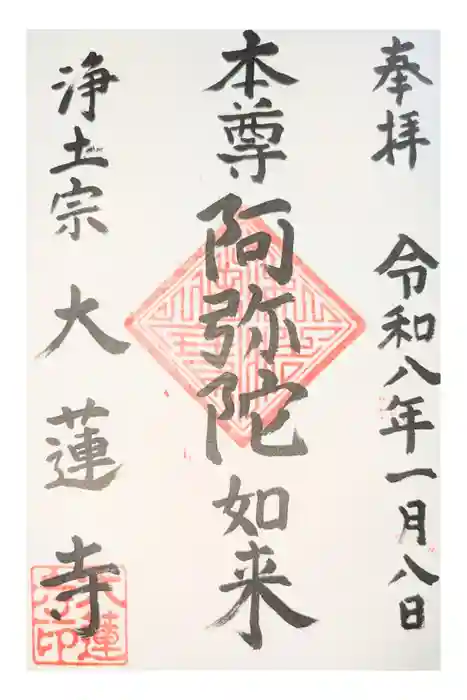 奉拝 令和八年一月八日
本尊 阿弥陀如来
浄土宗 大蓮寺
大蓮寺印